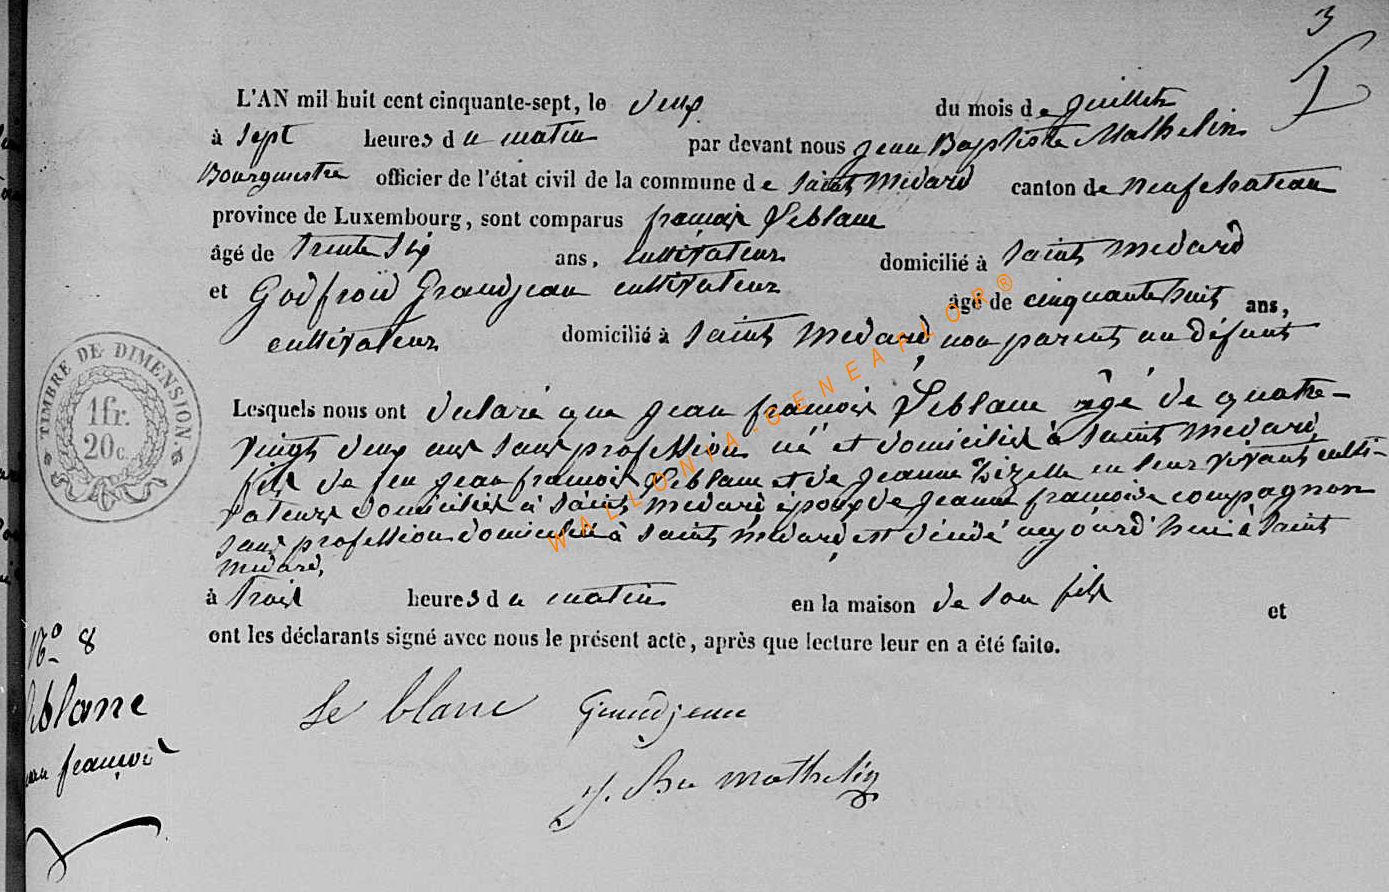 3
L'AN mil huit cent cinquante-sept, le deux du mois de juillet
à sept heures du matin par devant nous jean Baptiste Mathelin
Bourgmestre officier de l'état civil de la commune de saint médard canton de neufchateau
province de Luxembourg, sont comparus françois Leblanc
âgé de trente six ans, cultivateur domicilié à saint médard
et Godfroid Grandjean cultivateur âgé de cinquante huit ans,
cultivateur domicilié à saint médard, non parent au défunt
Lesquels nous ont déclaré que jean françois Leblanc âgé de quatre-
vingt deux ans sans profession né et domicilié à saint médard,
fils de feu jean françois Leblanc et de jeanne en leur vivant culti-
vateurs domiciliés à saint médard époux de jeanne françoise compagnon
sans profession domiciliée à saint médard, est décédé aujourd'hui à saint
médard,
à trois heures du matin en la maison de son fils et
ont les déclarants signé avec nous le présent acte, après que lecture leur en a été faite.
TIMBRE DE DIMENSION
1 fr.
20 c.
N° 8
leblanc
françois
Le blanc Grandjean
J. Bte mathelin
WALLONIA-GENEAFLOR®